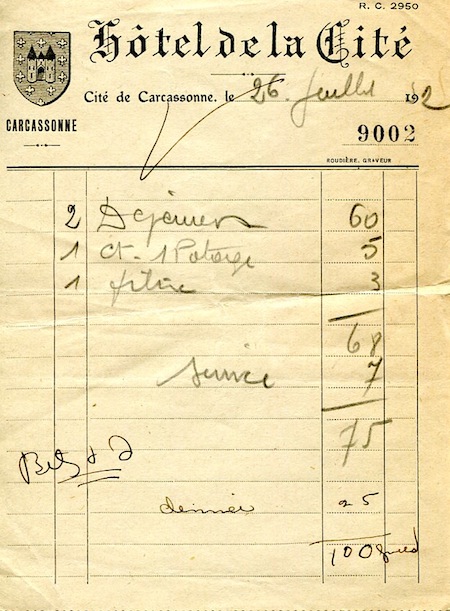 R. C. 2950
Hôtel de la Cité
Cité de Carcassonne, le 26 Juillet 192
CARCASSONNE
9002
ROUDIÈRE, GRAVEUR
2 Dejeuners 60
1 1 Potage 5
1 filtre 3
68
service 7
75
25
100